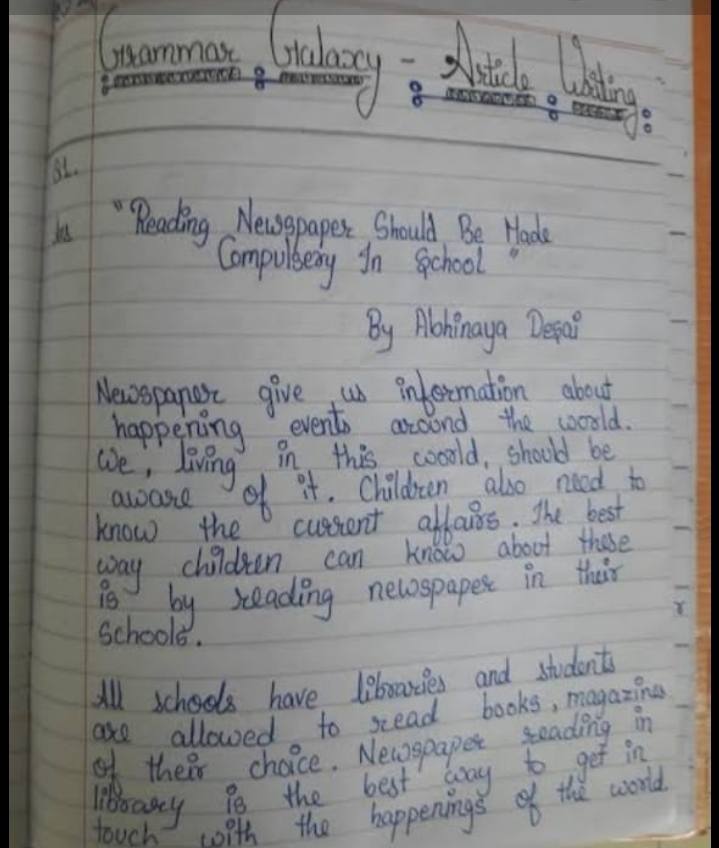 Grammar Galaxy - Article Writing:
Q1.
Ans "Reading Newspaper Should Be Made
Compulsery In School"
By Abhinaya Desai
Newspaper give us information about
happening events around the world.
We, living in this world, should be
aware of it. Children also need to
know the current affairs. The best
way children can know about these
is by reading newspaper in their
schools.
All schools have libraries and students
are allowed to read books, magazines
of their choice. Newspaper reading in
library is the best way to get in
touch with the happenings of the world.